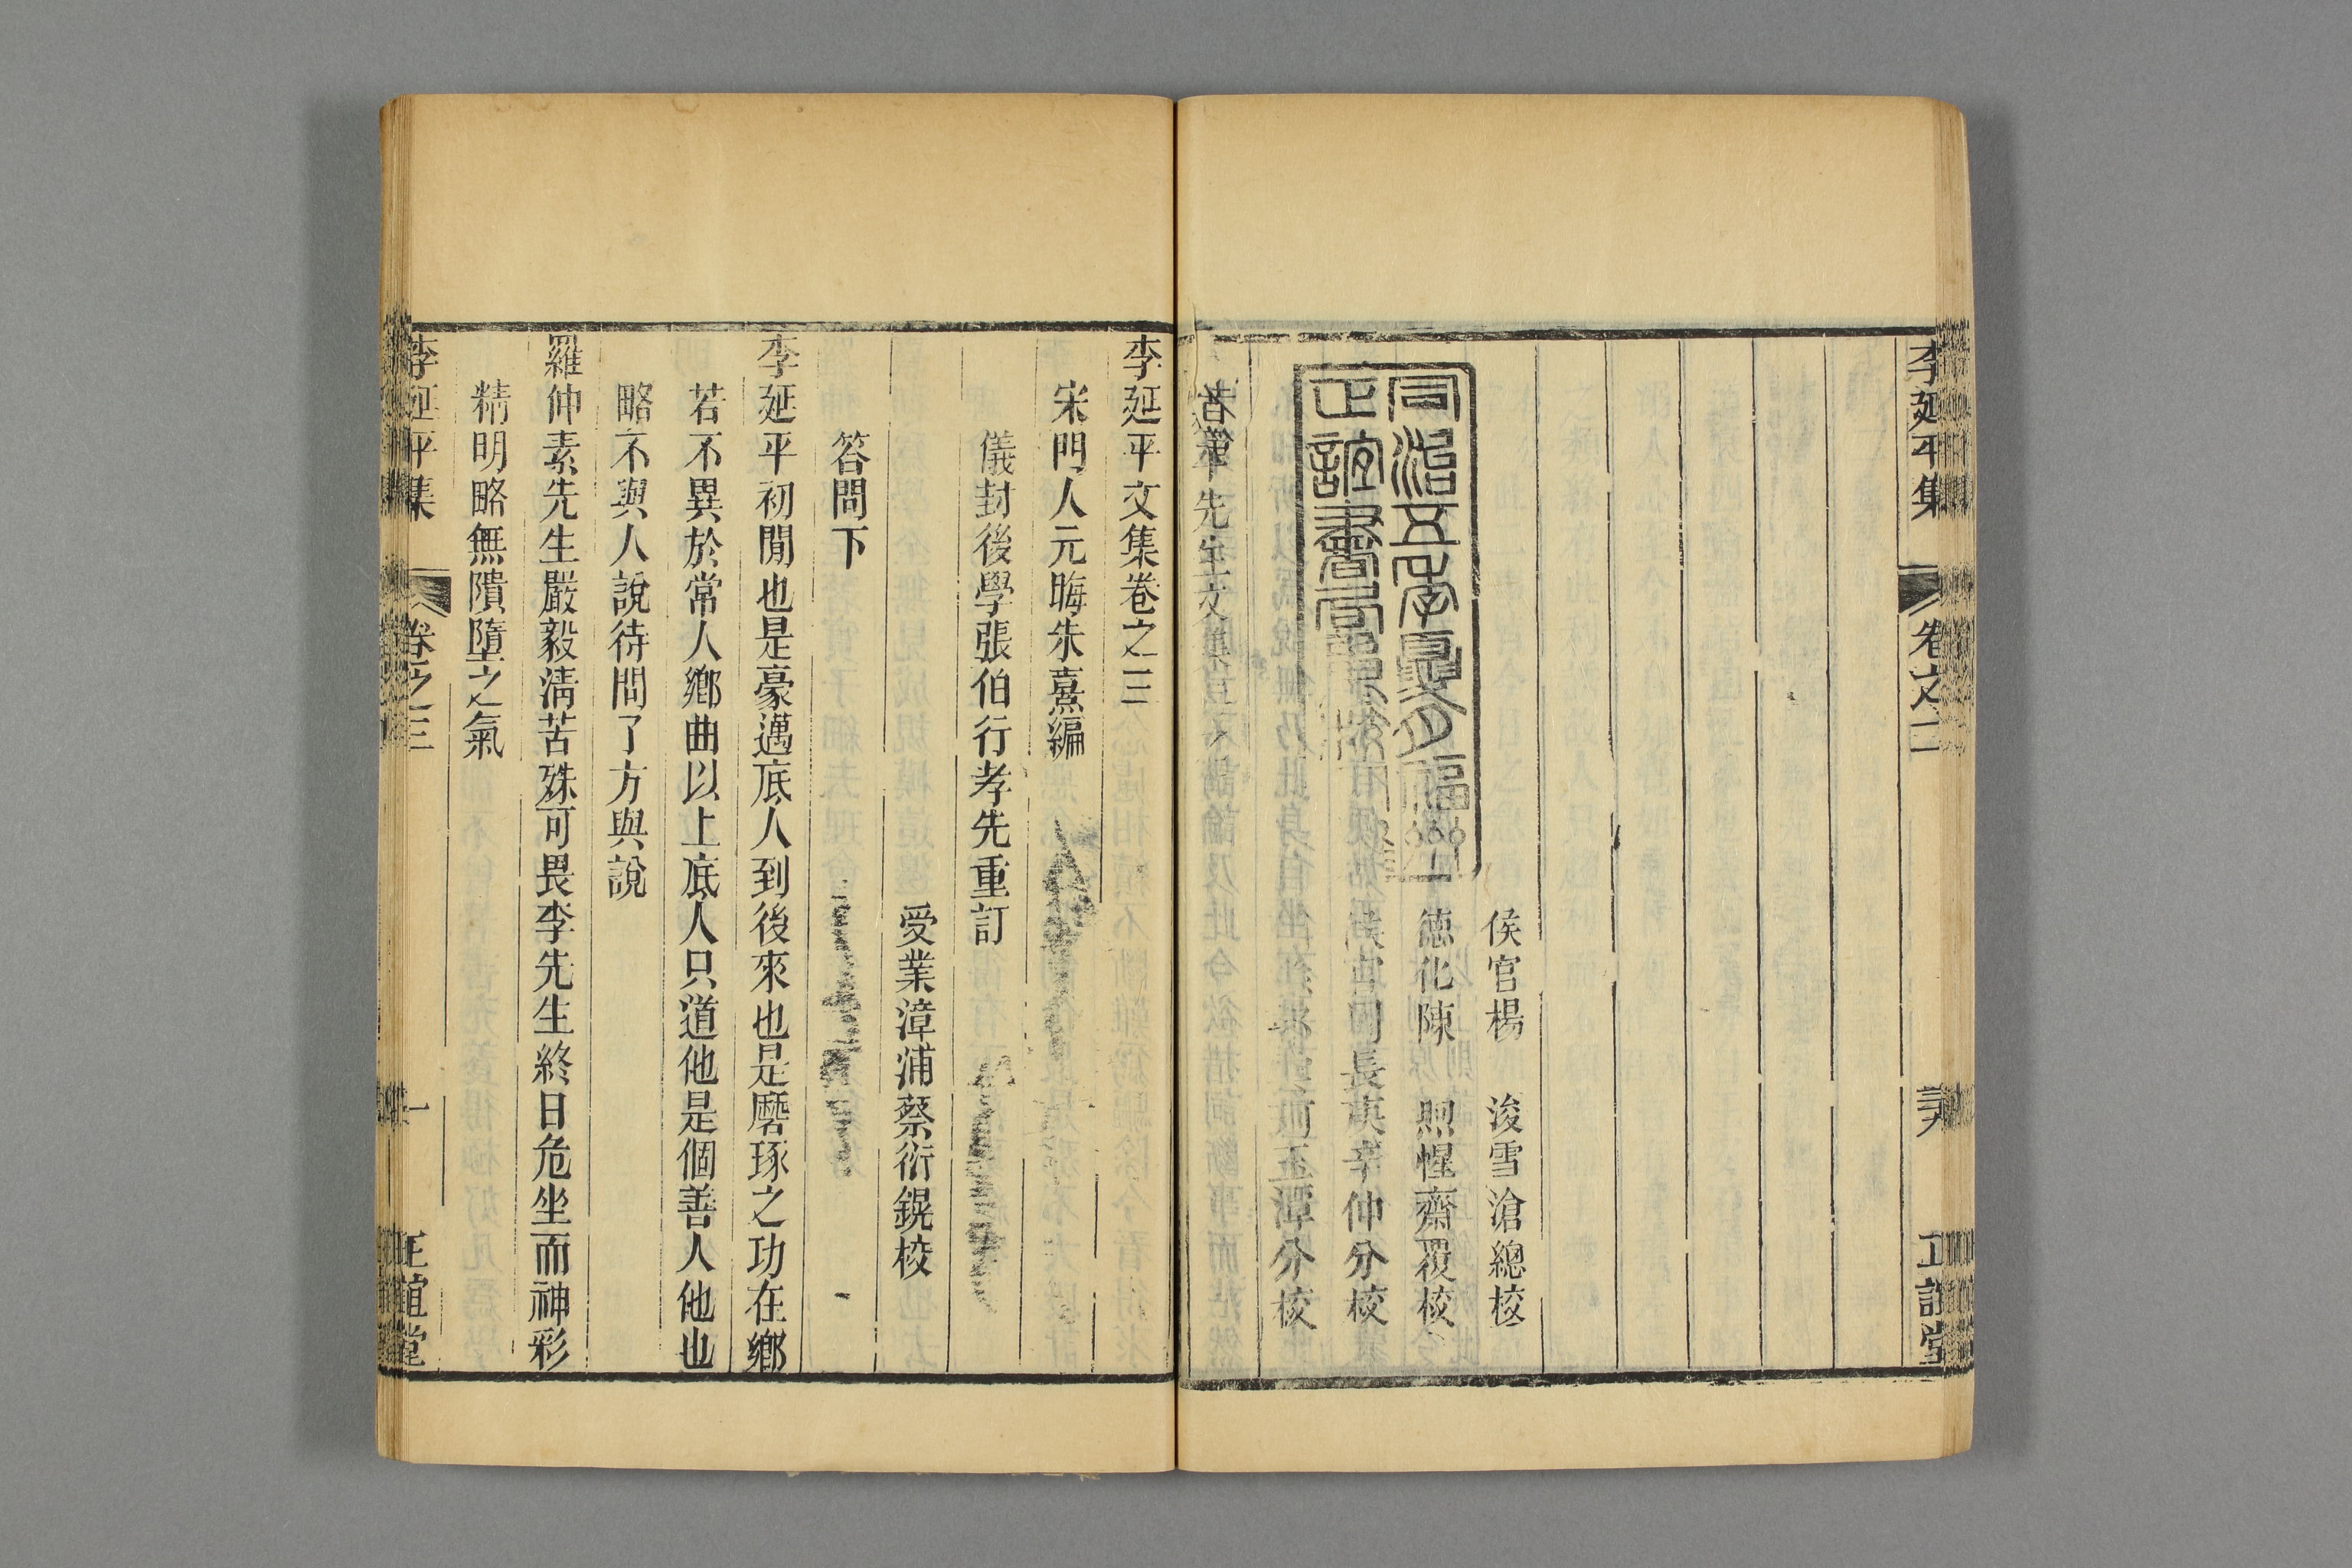 李延平集
卷之二
正誼堂
侯官楊 浚雪滄總校
德化陳 煦惺齋覆校
侯官周長庚辛仲分校
分校
同治五年夏月福
正誼書局
李延平文集卷之三
宋門人元晦朱熹編
儀封後學張伯行孝先重訂
受業漳浦蔡衍鎤校
答問下
李延平初間也是豪邁底人到後來也是磨琢之功在鄉
若不異於常人鄉曲以上底人只道他是個善人他也
略不與人說待問了方與說
羅仲素先生嚴毅清苦殊可畏李先生終日危坐而神彩
精明略無隤墮之氣
李延平集
卷之三
一
正誼堂